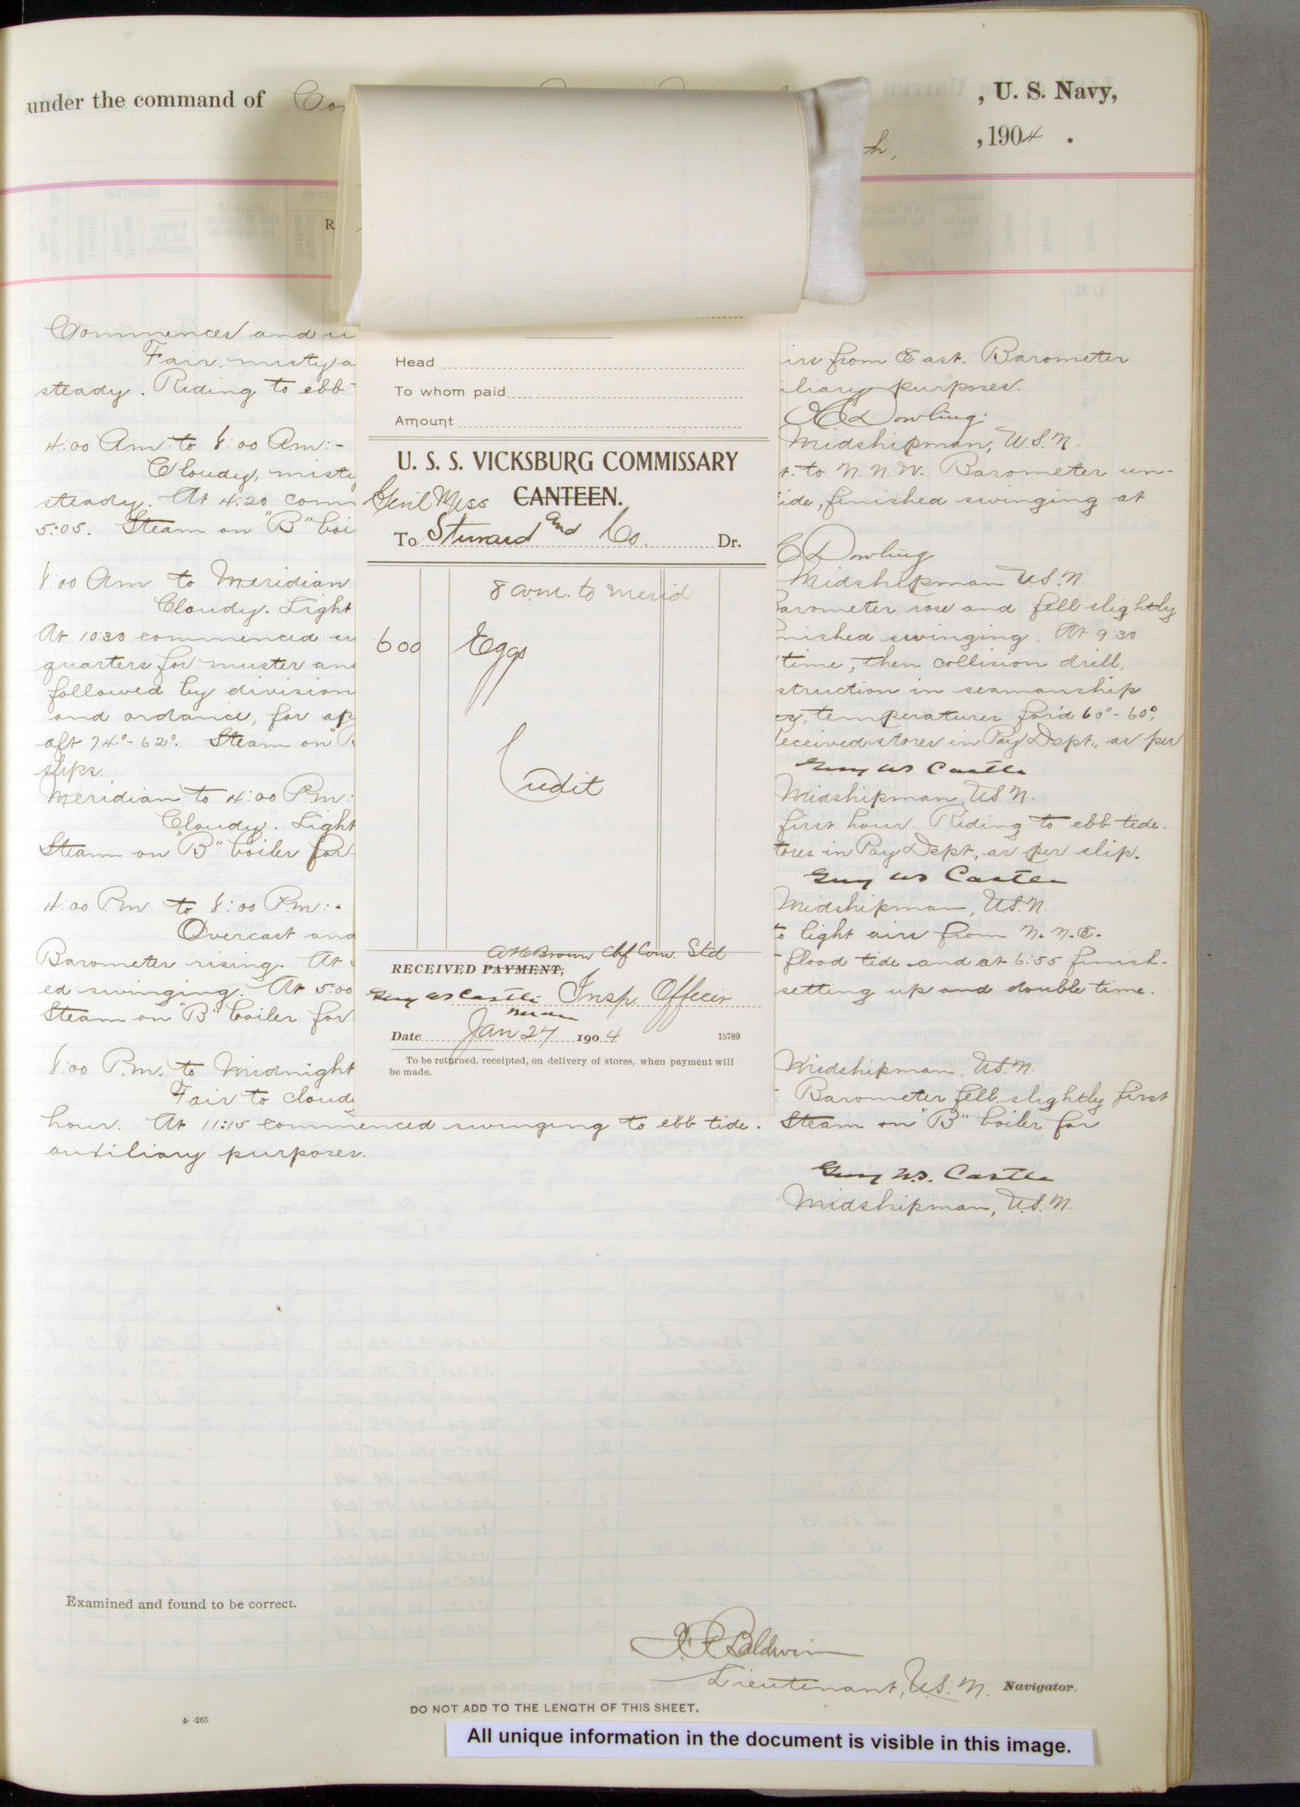 under the command of
, U. S. Navy,
h,
, 1904 .
R
Commences and
Fair, misty
steady. Riding to ebb
irs from East. Barometer
iliary purposes.
Dowling.
Midshipman, U.S.N.
4:00 Am to 8:00 Am:-
Cloudy, misty
steady. At 4:20 comm
5:05. Steam on "B" boi
t. to N.N.W. Barometer un-
ide, finished swinging at
C Dowling
Midshipman U.S.N
8:00 Am to Meridian
Cloudy. Light
At 10:30 commenced
quarters for muster and
followed by division
and ordance, for
aft 74°-62°. Steam on "B
slips.
arometer rose and fell slightly
inished swinging. At 9:30
time, then collision drill,
struction in seamanship
temperatures for'd 60°-60°,
eceived stores in Pay Dept., as per
Guy W S Castle
Midshipman, U.S.N.
Meridian to 4:00 P.m:
Cloudy. Light
Steam on "B" boiler for
first hour. Riding to ebb tide.
tores in Pay Dept, as per slip.
Guy W S Castle
Midshipman, U.S.N.
4:00 P.m. to 8:00 P.m:-
Overcast and
Barometer rising. At
ed swinging. At 5:00
Steam on "B" boiler for
to light airs from N.N.E.
flood tide and at 6:55 finish-
setting up and double time.
Midshipman, U.S.N.
8:00 P.m. to Midnight
Fair to cloudy
Barometer fell slightly first
hour. At 11:15 commenced swinging to ebb tide. Steam on "B" boiler for
auxiliary purposes.
Guy W.S. Castle
Midshipman, U.S.N.
Head
To whom paid
Amount
U. S. S. VICKSBURG COMMISSARY
Genl Mess CANTEEN.
To Steward and Co. Dr.
8 a.m. to merid
600 Eggs
Credit
A H Brown Chf Com. Std
RECEIVED PAYMENT,
Guy W S Castle Insp. Officer
Date Jan 27 1904
15789
To be returned, receipted, on delivery of stores, when payment will
be made.
Examined and found to be correct.
Baldwin
Lieutenant, U.S.N. Navigator.
DO NOT ADD TO THE LENGTH OF THIS SHEET.
4-265
All unique information in the document is visible in this image.